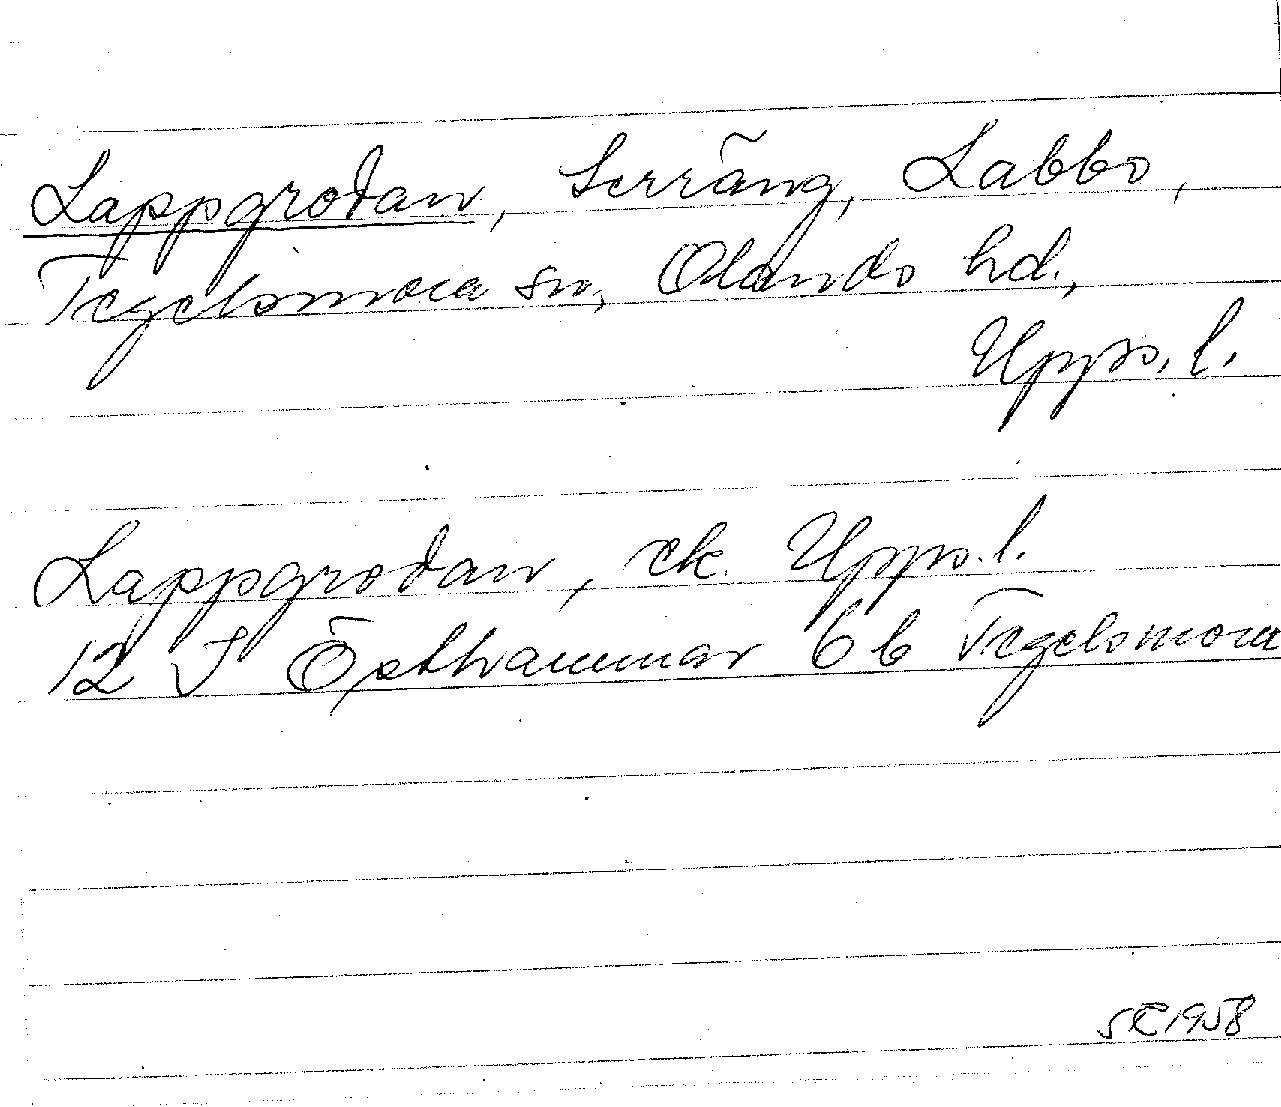 Lappgrodan, Serräng, Labbo,
Tegelsmora sn, Olands hd.,
Upps. l.
Lappgrodan, ek. Upps. l.
12 I Östhammar 6 b Tegelsmora
SE 1958